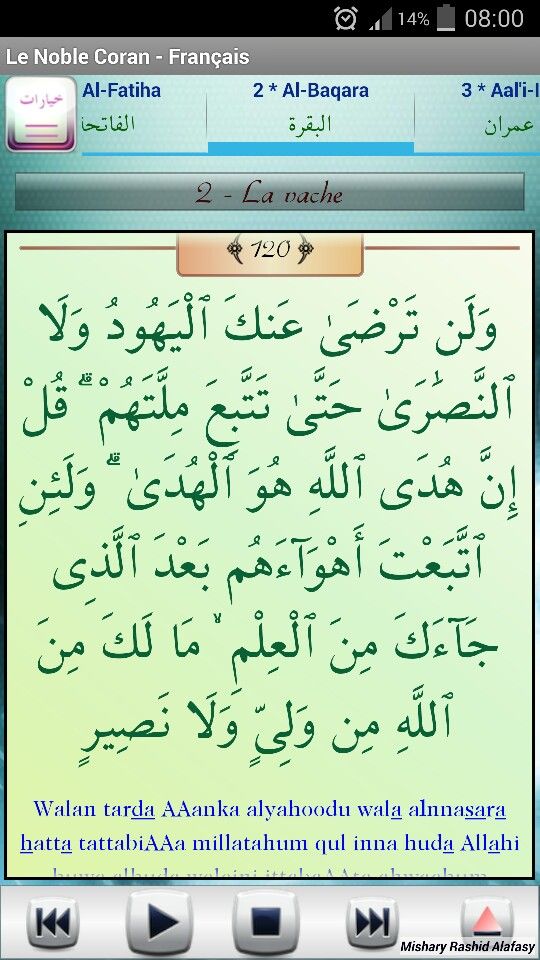 14% 08:00
Le Noble Coran - Français
خيارات
Al-Fatiha 2 * Al-Baqara 3 * Aal'i-I
الفاتحة البقرة عمران
2 - La vache
120
وَلَن تَرْضَىٰ عَنكَ ٱلْيَهُودُ وَلَا
ٱلنَّصَٰرَىٰ حَتَّىٰ تَتَّبِعَ مِلَّتَهُمْ ۗ قُلْ
إِنَّ هُدَى ٱللَّهِ هُوَ ٱلْهُدَىٰ ۗ وَلَئِنِ
ٱتَّبَعْتَ أَهْوَآءَهُم بَعْدَ ٱلَّذِى
جَآءَكَ مِنَ ٱلْعِلْمِ ۙ مَا لَكَ مِنَ
ٱللَّهِ مِن وَلِىٍّ وَلَا نَصِيرٍ
Walan tarda AAanka alyahoodu wala alnnasara
hatta tattabiAAa millatahum qul inna huda Allahi
huwa alhuda walaini ittabaAAta ahwaahum
Mishary Rashid Alafasy